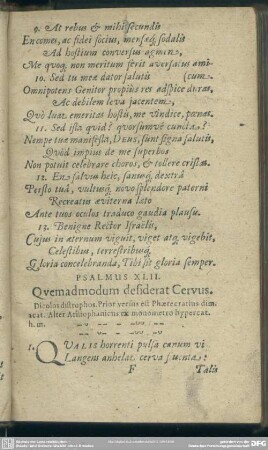 9. At rebus & mihi secundis
En comes, ac fidei socius, mensæq́; sodalis
Ad hostium conversus agmen,
Me quoq; non meritum ferit aversatus ami-
10. Sed tu meæ dator salutis (cum.
Omnipotens Genitor propius res adspice
Ac debilem leva jacentem,
Quò luat emeritas hostis, me vindice, pœnas.
11. Sed ista quid? quorsumve cuncta?
Nempe tuæ manifesta, DEUS, sunt signa salutis,
Quòd impius de me superbos
Non potuit celebrare choros, & tollere cristas.
12. En salvus heic, sanusq́; dextrâ
Persto tuâ, vultuq́; novo splendore paterni
Recreatus æviterna lato
Ante tuos oculos traduco gaudia plausu.
13. Benigne Rector Israelis,
Cujus in æternum viguit, viget atq; vigebit,
Celestibus, terrestribusq́;
Gloria concelebranda, Tibi sit gloria semper.
PSALMUS XLII.
Qvemadmodum desiderat Cervus.
Dicolos distrophos. Prior versus est Pherecratius dim.
acat. Alter Aristophanicus ex monometro hypercat.
1. QUALIS horrenti pulsa canum vi
Langens anhelat cerva fluenta:
F Talis